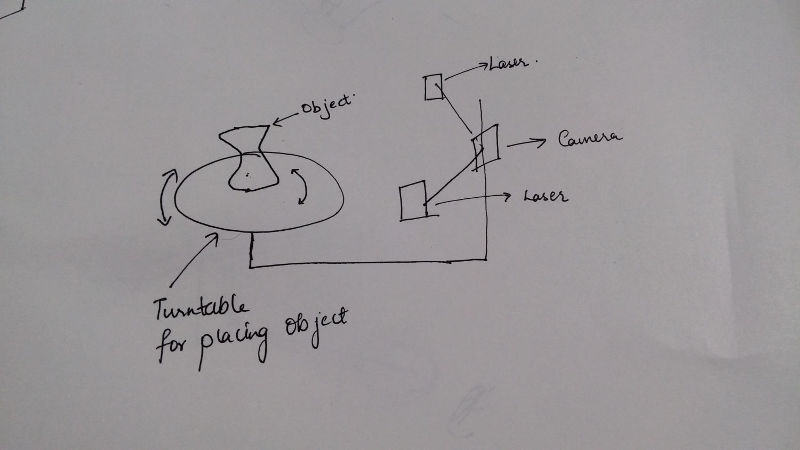 Laser.
Object.
Camera
Laser
Turntable
for placing object